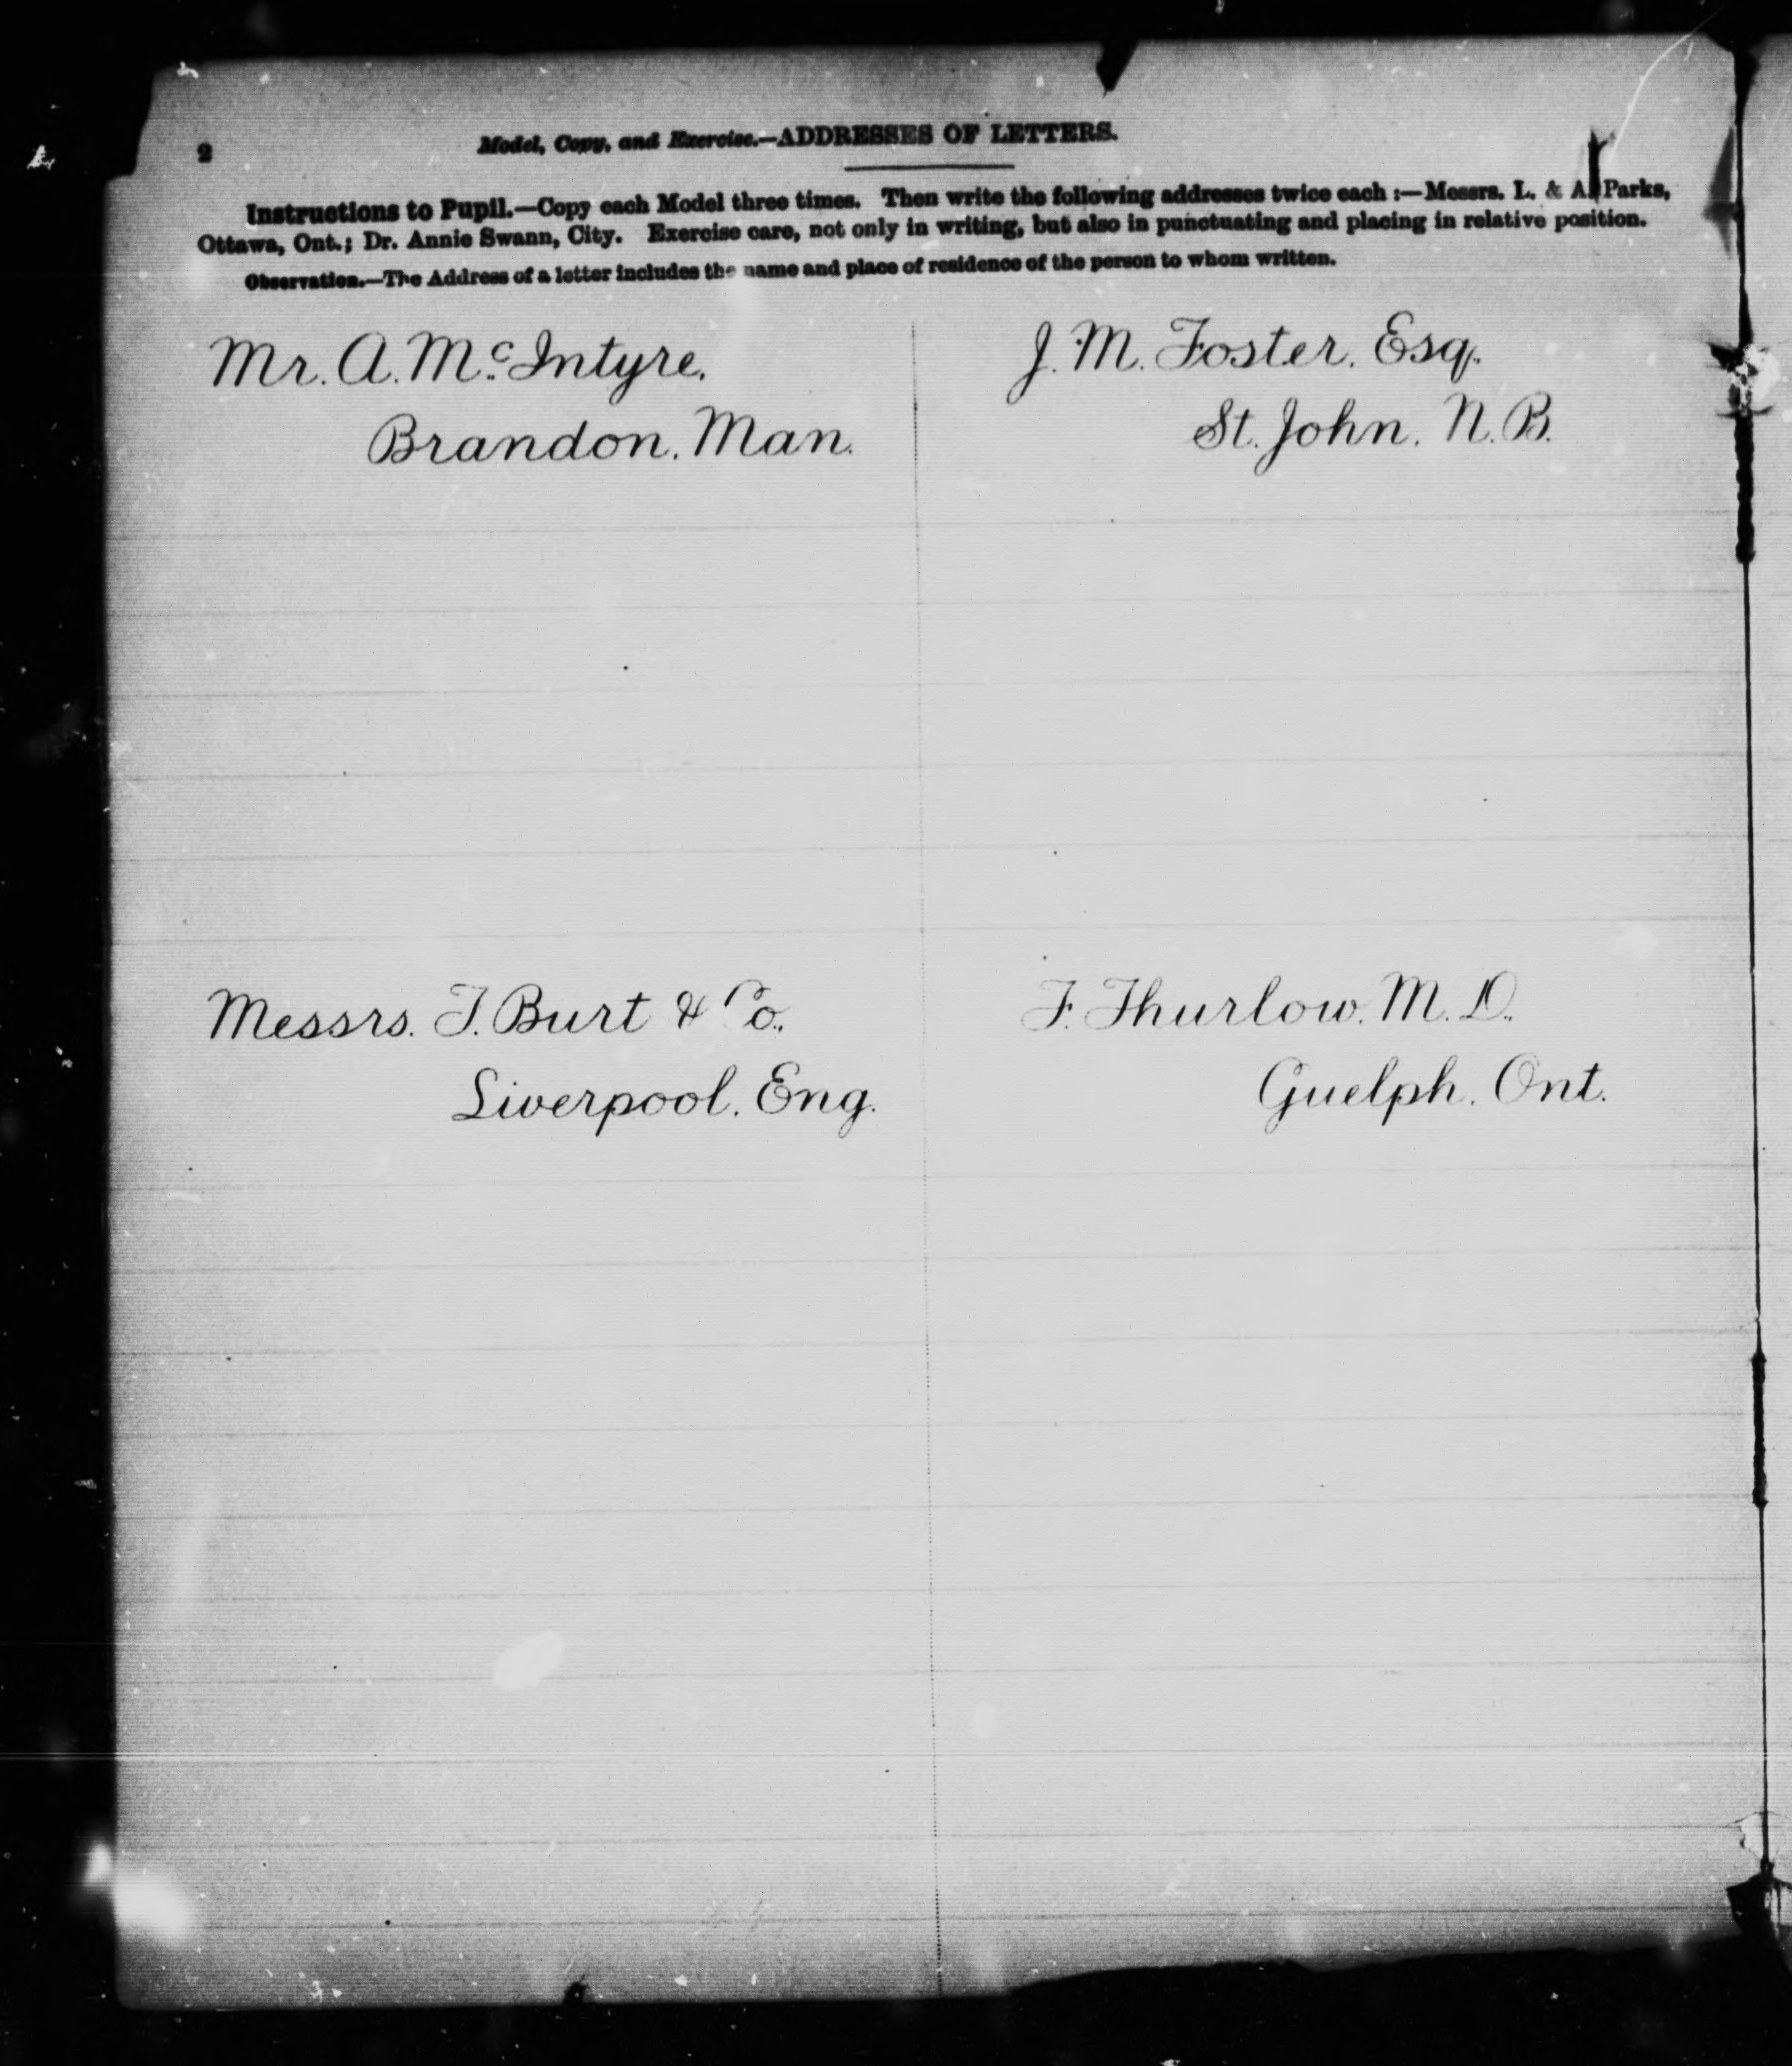 2
Model, Copy, and Exercise.—ADDRESSES OF LETTERS.
Instructions to Pupil.—Copy each Model three times. Then write the following addresses twice each :—Messrs. L. & A. Parks,
Ottawa, Ont.; Dr. Annie Swann, City. Exercise care, not only in writing, but also in punctuating and placing in relative position.
Observation.—The Address of a letter includes the name and place of residence of the person to whom written.
Mr. A. Mc. Intyre,
Brandon, Man.
J. M. Foster, Esq.
St. John, N. B.
Messrs. T. Burt & Co.,
Liverpool, Eng.
F. Thurlow, M. D.,
Guelph, Ont.